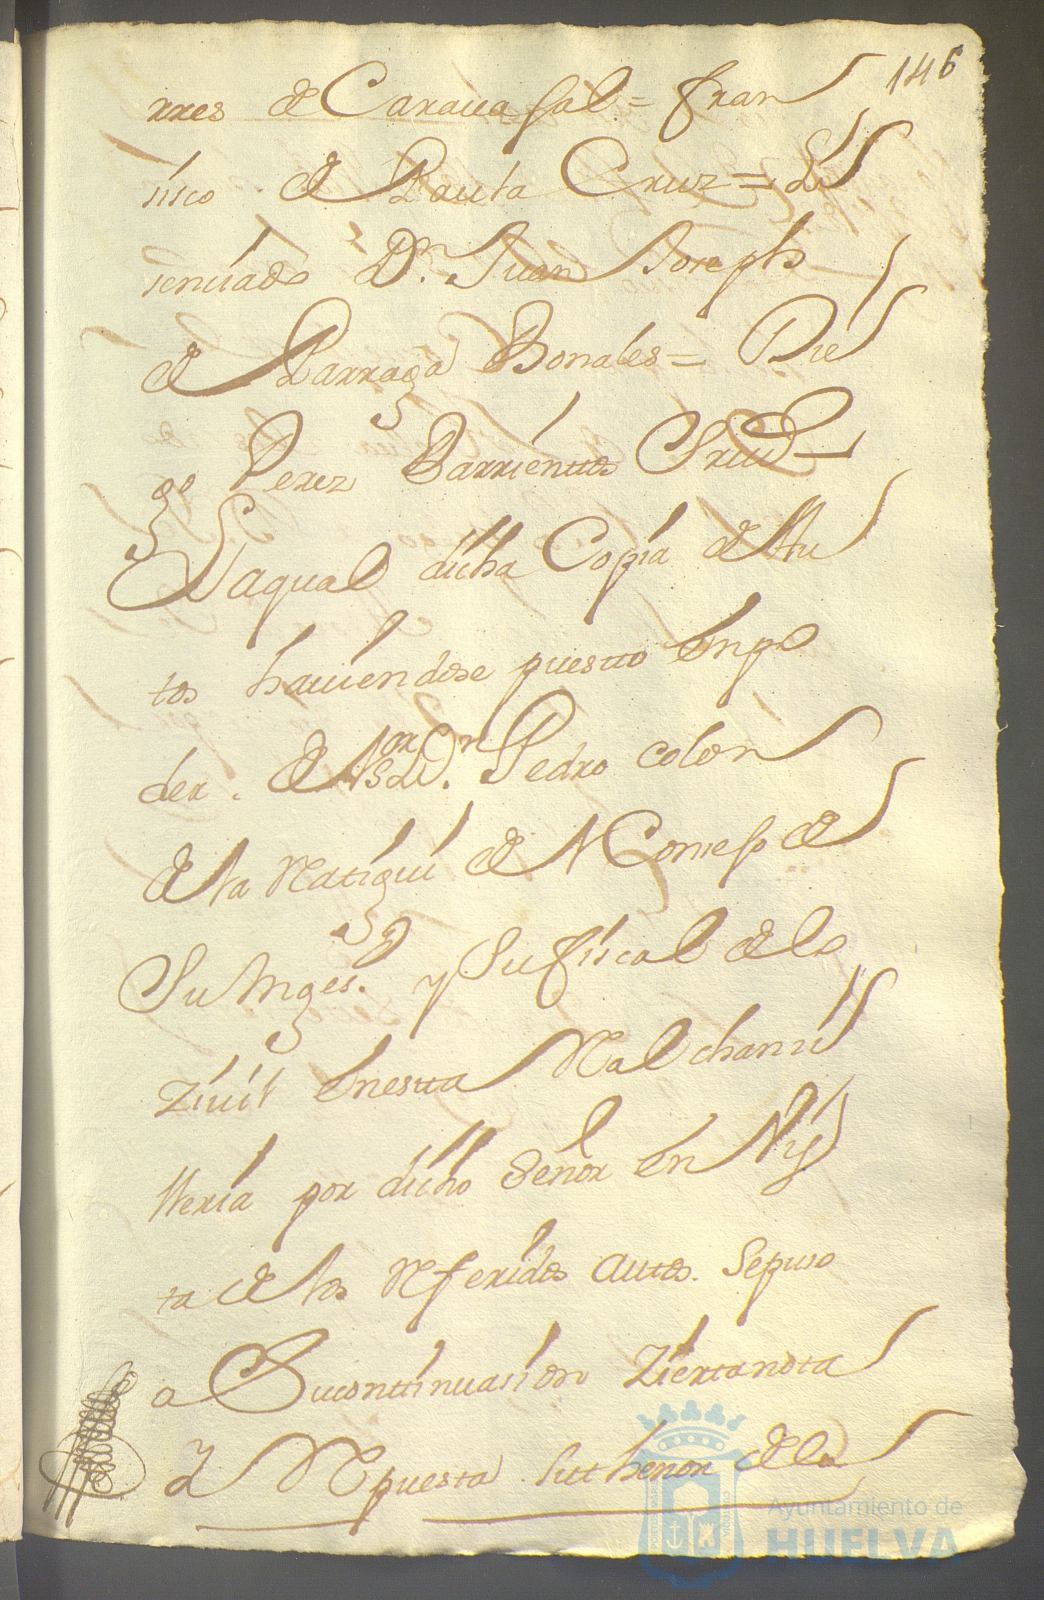 146
rres de Caravafal = fran
sisco de Pauta Cruz = Lis
senciado Dn. Juan Joseph
de Parraga Bonales = Die
go Perez Barrientos
Laqual dicha Copia de Au
tos haviendose puesto En po
der. de el Sor Dn. Pedro colon
de la Ratigui de el Consefo de
Su Mages.d y su fiscal de lo
Zivil En esta Real chansi
lleria por dicho Señor En Vis
ta de los Referidos autos. Sepuso
a Sucontinuasion Ziertanota
y Repuesta Su thenor de la
Ayuntamiento de
HUELVA